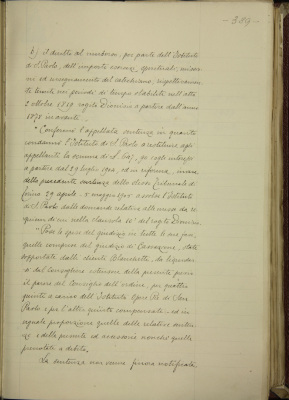 - 389 -
b) il diritto al rimborso, per parte dell'Istituto
di S. Paolo, dell'importo esercizi spirituali, missio-
ni ed insegnamento del catechismo, rispettivamen-
te tenuti nei periodi di tempo stabiliti nell'atto
2 ottobre 1819 rogito a partire dall'anno
1878 in avanti.
"Conferma l'appellata sentenza in quanto
condannò l'Istituto di S. Paolo a restituire agli
appellanti la somma di L. cogli interessi
a partire dal 29 luglio 1904, ed in riforma,
della precedente sentenza dello stesso Tribunale di
Torino 29 aprile - 2 maggio 1905 assolve l'Istituto
di S. Paolo dalla domanda relativa alle messe da re-
quiem di cui nella clausola 10ª del rogito
"Pone le spese del giudizio in tutte le sue fasi,
quelle comprese del giudizio di Cassazione, state
sopportate dalli clienti da liquidar-
si dal Consigliere estensore della presente previo
il parere del Consiglio dell'ordine, per quattro
quinti a carico dell'Istituto Opere Pie di San
Paolo e per l'altro quinto compensate - ed in
eguale proporzione quelle delle relative senten-
ze e della presente ed accessorie nonchè quelle
prenotate a debito.
La sentenza non venne finora notificata